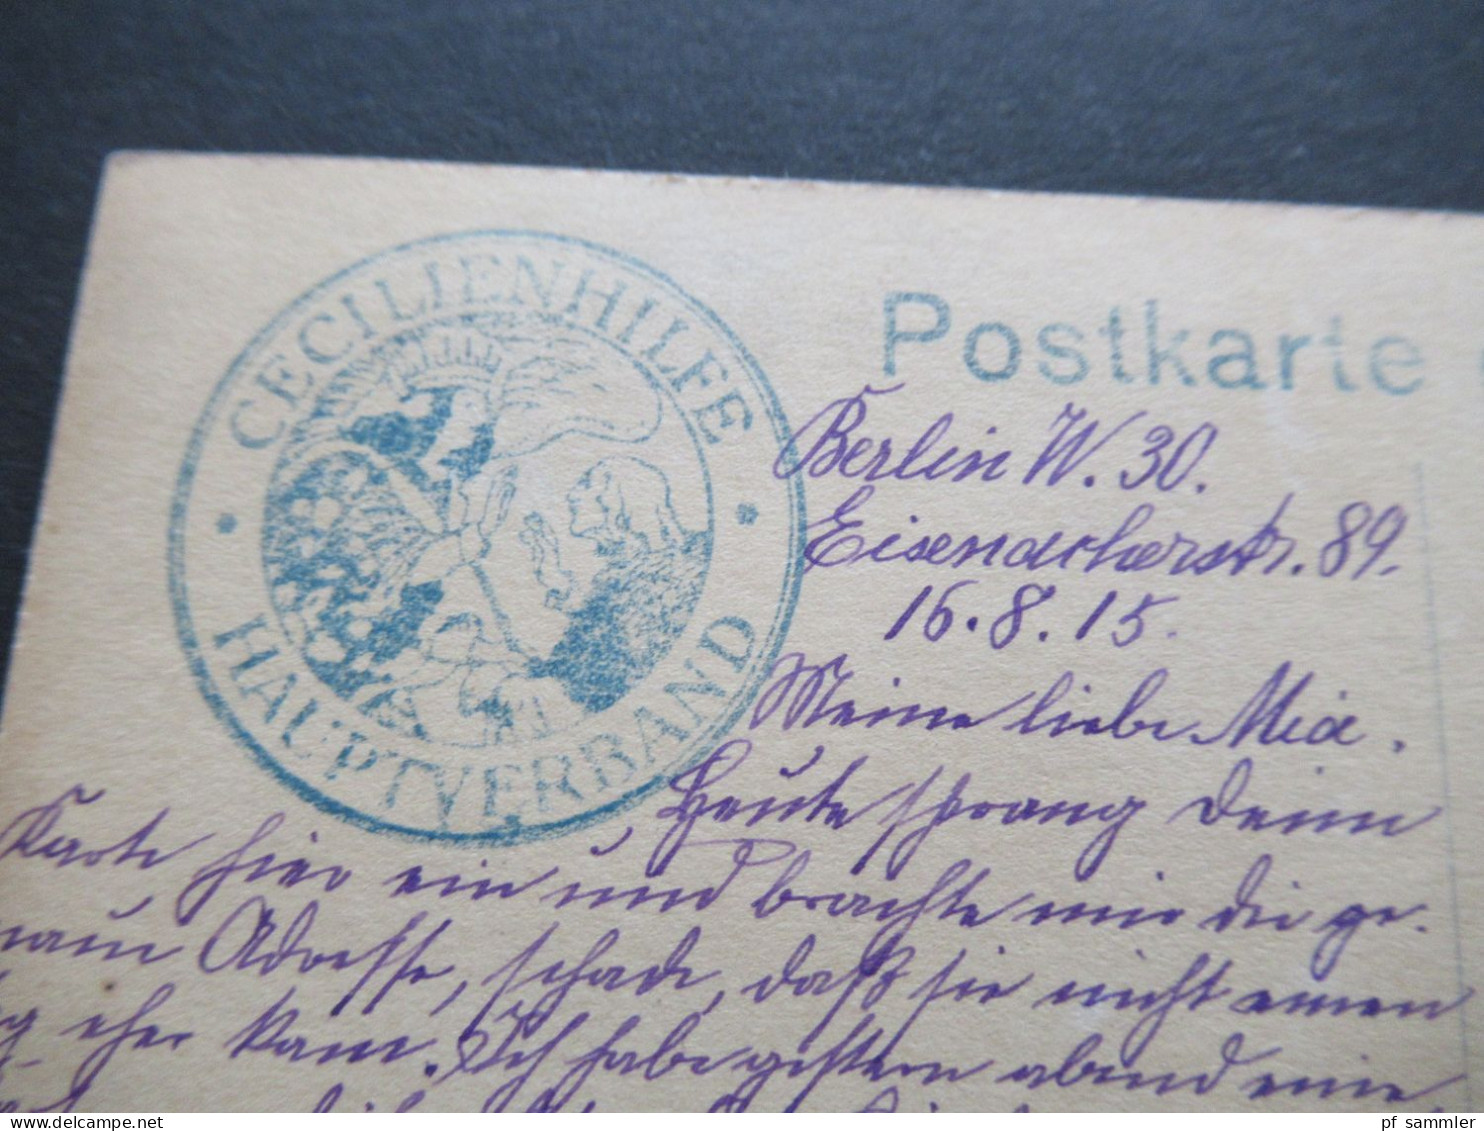 CECILIENHILFE
HAUPTVERBAND
Postkarte
Berlin W. 30.
Eisenacherstr. 89.
16.8.15.
Meine liebe Mia.
Heute sprang Deine
Karte hier ein und brachte mir die ge-
naue Adresse, schade, daß sie nicht einen
eher kam. Ich habe gestern abend eine
www.delcampe.net
pf_sammler